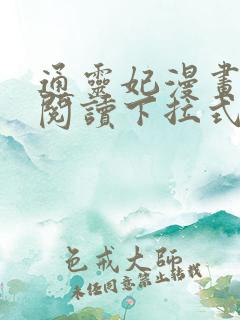 通靈妃漫畫
閱讀下拉式
色戒大師
未经同意禁止转载